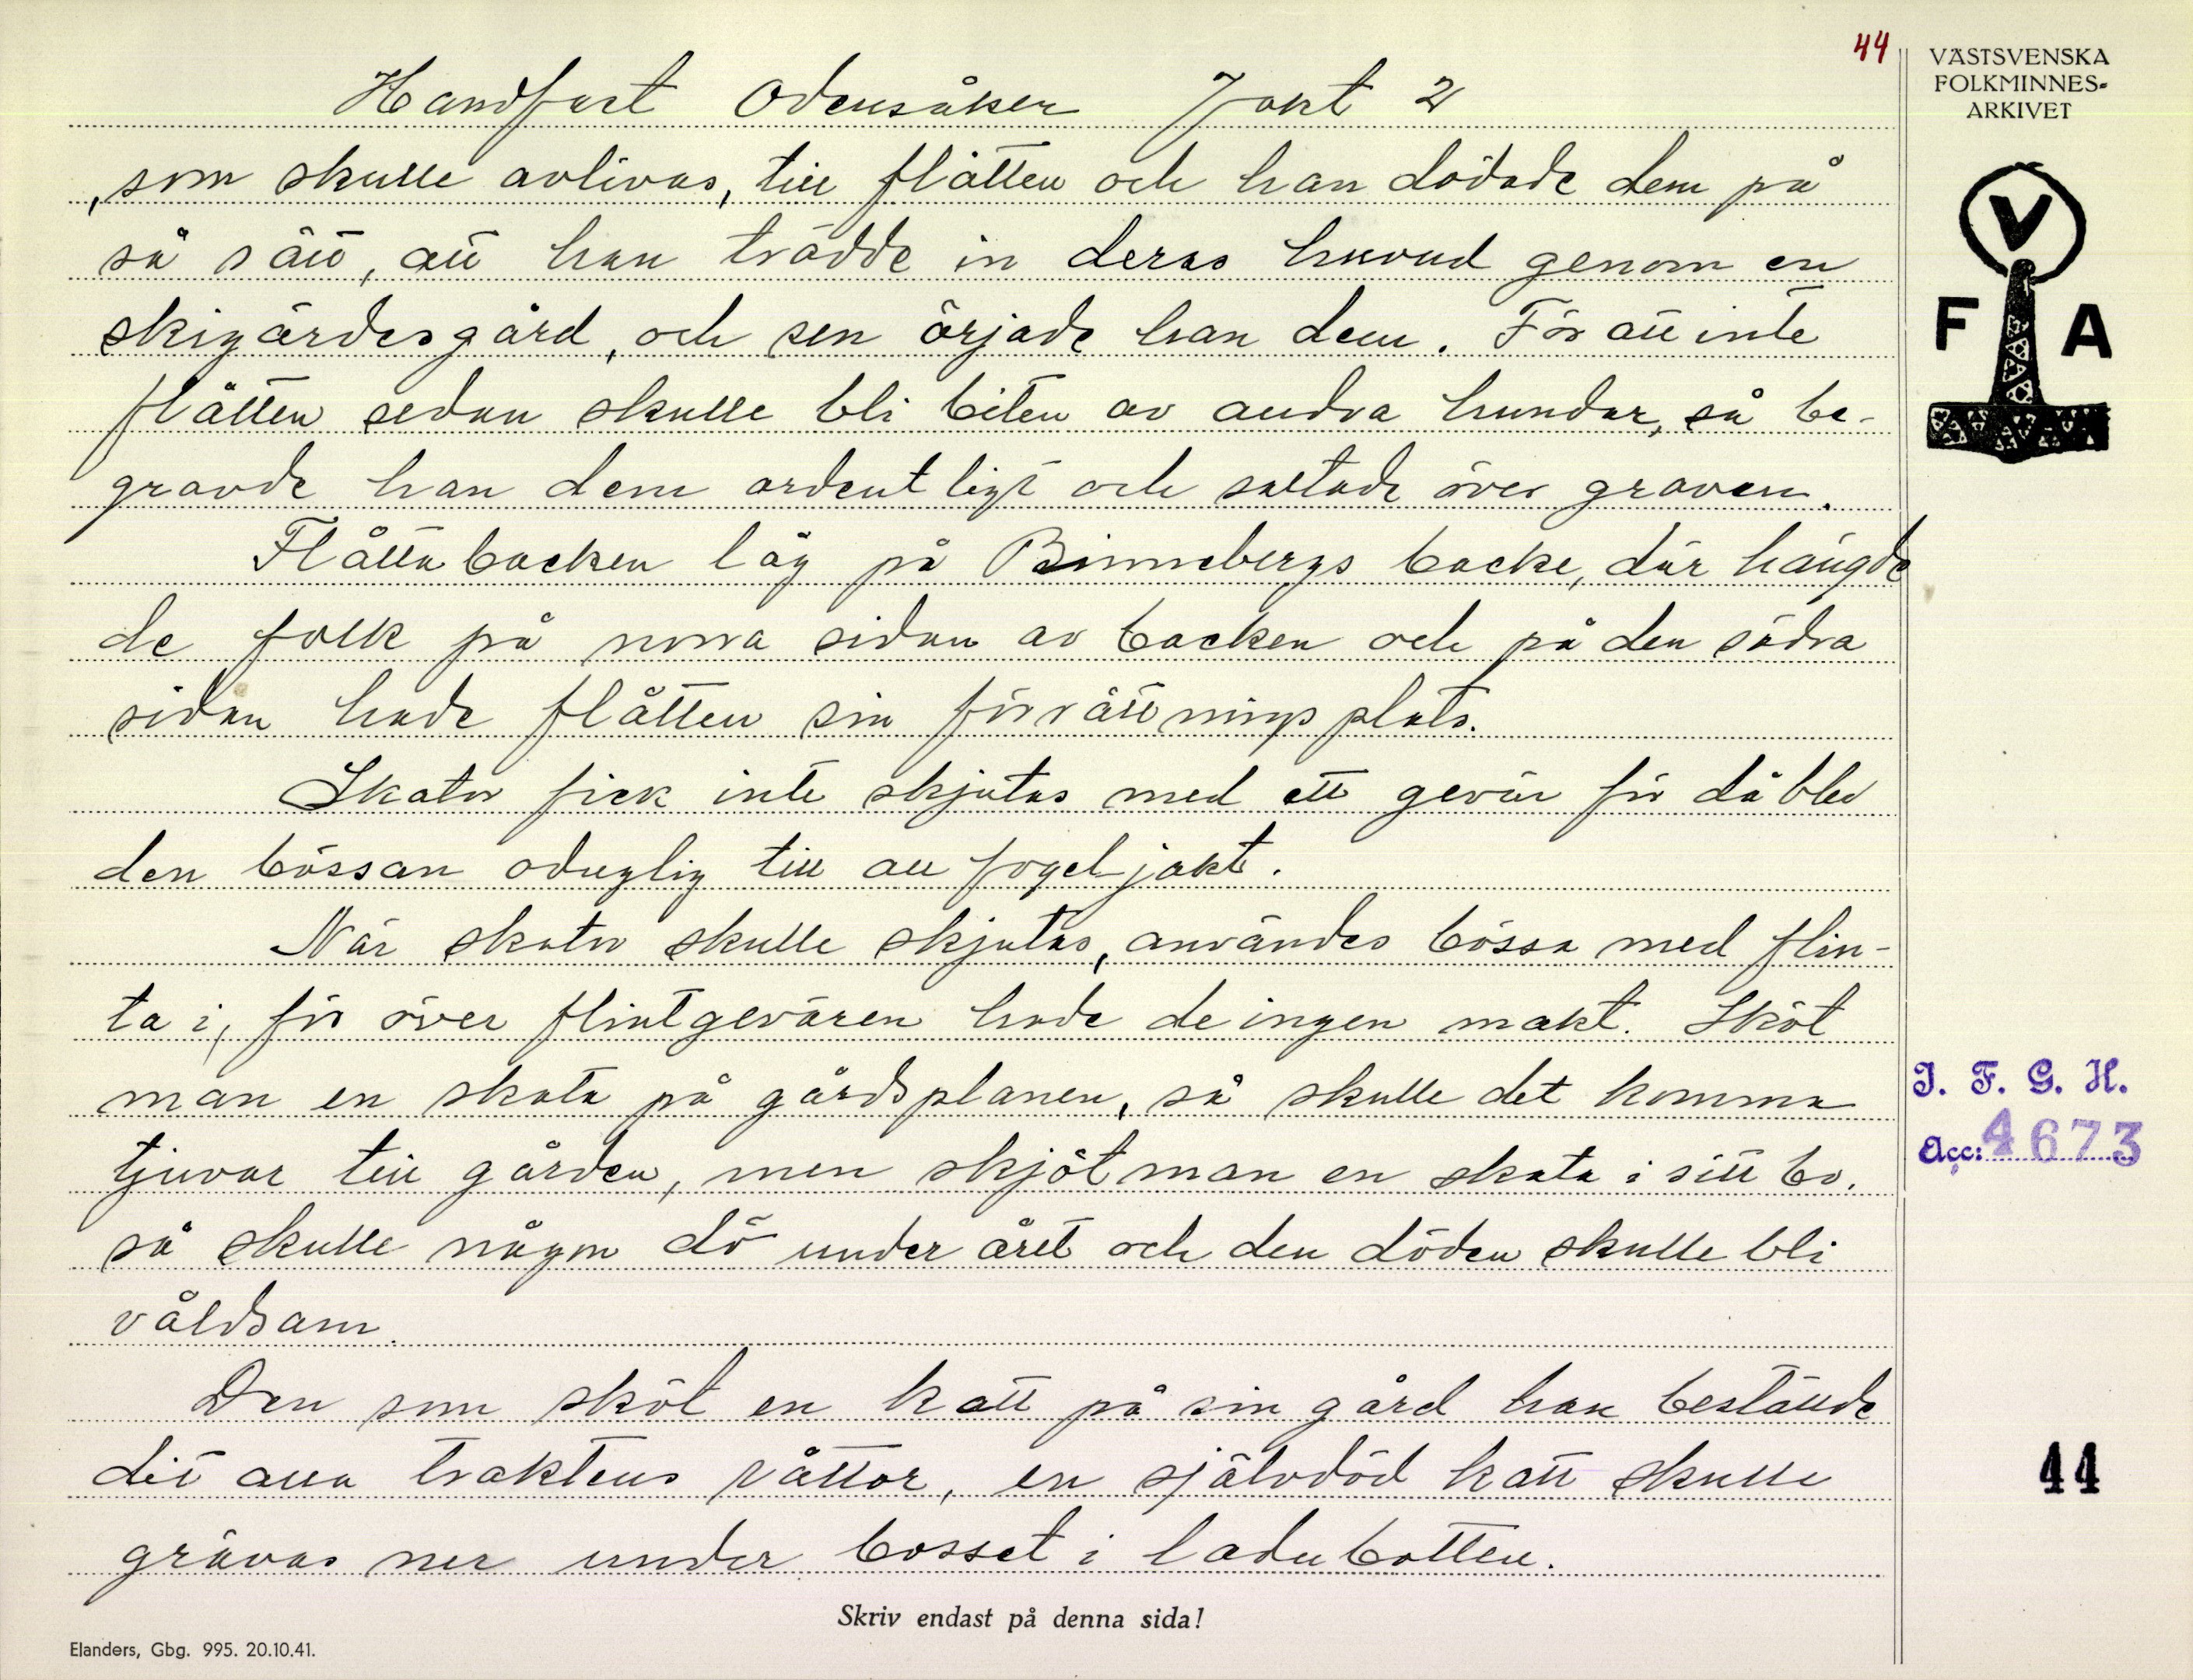 44
VÄSTSVENSKA
FOLKMINNES-
ARKIVET
V
F A
Handfast Odensåker Jakt 2
, som skulle avlivas, till flåtten och han dödade dem på
så sätt, att han trädde in deras huvud genom en
skigärdesgård, och sen örjade han dem. För att inte
flåtten sedan skulle bli biten av andra hundar, så be-
gravde han dem ordentligt och saltade över graven.
Flåttabacken låg på Binnebergs backe, där hängde
de folk på norra sidan av backen och på den södra
sidan hade flåtten sin förrättningsplats.
Skator fick inte skjutas med ett gevär för då blev
den bössan oduglig till all fogeljakt.
När skator skulle skjutas, användes bössa med flin-
ta i, för över flintgevären hade de ingen makt. Sköt
man en skata på gårdsplanen, så skulle det komma
tjuvar till gården, men skjöt man en skata i sitt bo,
så skulle någon dö under året och den döden skulle bli
våldsam.
Den som sköt en katt på sin gård han beställde
dit alla traktens råttor, en självdöd katt skulle
grävas ner under bosset i ladubotten.
J. F. G. H.
Acc: 4673
44
Skriv endast på denna sida!
Elanders, Gbg. 995. 20.10.41.